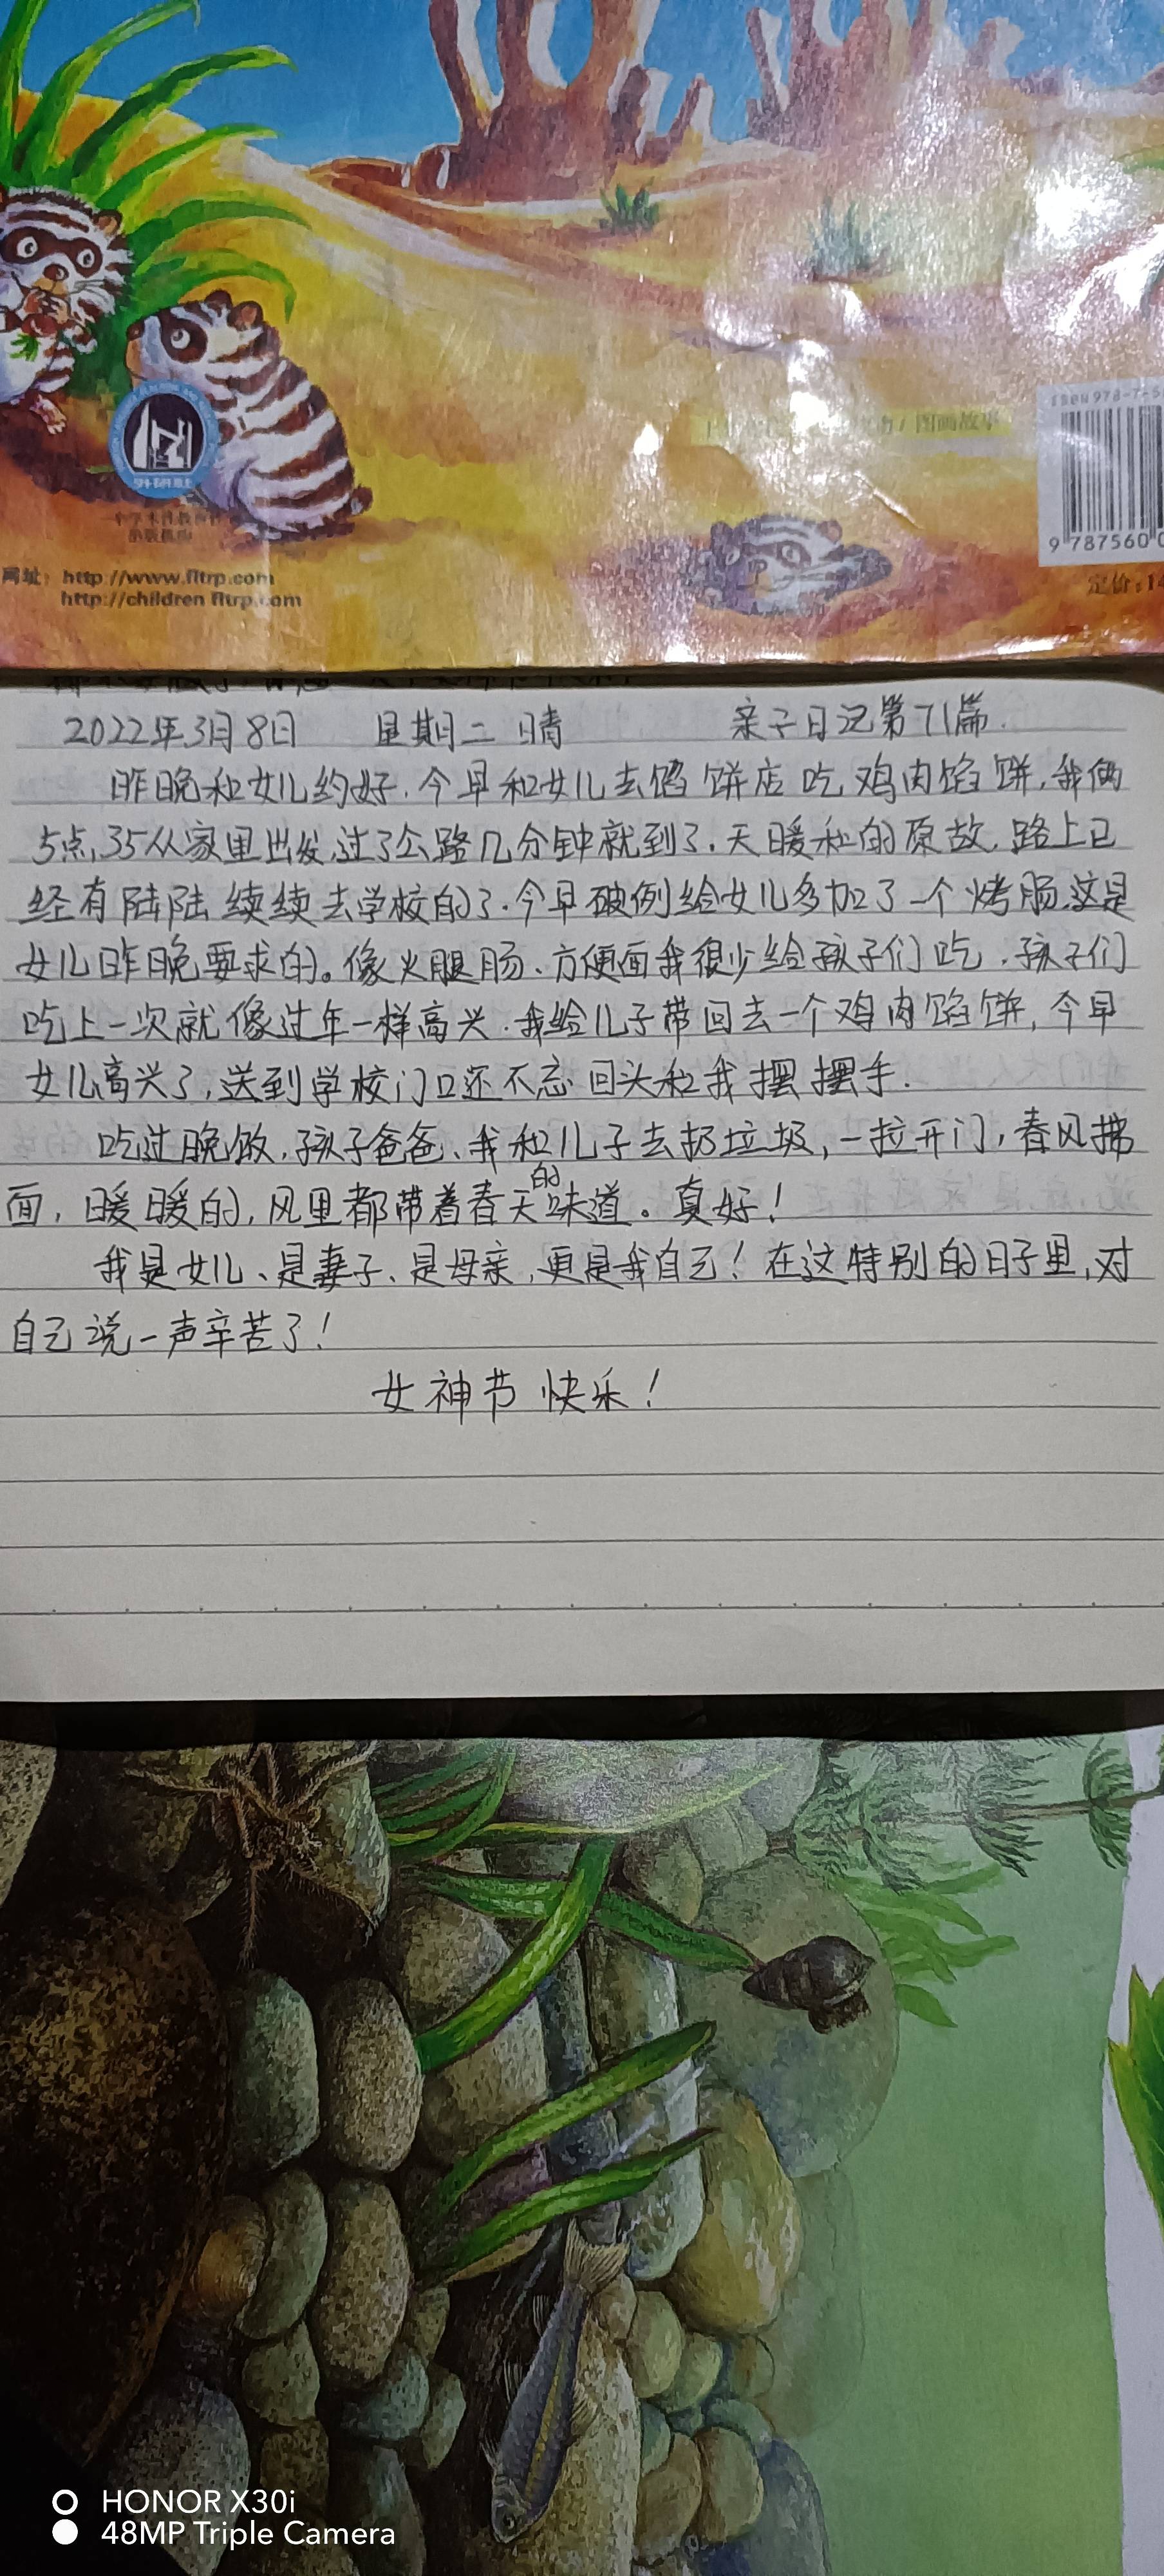 ISBN 978-7-5
外研社
9 787560 0
网址：http://www.fltrp.com
http://children.fltrp.com
定价:14
2022年3月8日 星期二 晴 亲子日记第71篇.
昨晚和女儿约好.今早和女儿去馅饼店吃鸡肉馅饼,我俩
5点,35从家里出发,过了公路几分钟就到了.天暖和的原故,路上已
经有陆陆续续去学校的了.今早破例给女儿多加了一个烤肠.这是
女儿昨晚要求的。像火腿肠、方便面我很少给孩子们吃.孩子们
吃上一次就像过年一样高兴.我给儿子带回去一个鸡肉馅饼,今早
女儿高兴了,送到学校门口还不忘回头和我摆摆手.
吃过晚饭,孩子爸爸、我和儿子去扔垃圾,一拉开门,春风拂
面,暖暖的,风里都带着春天的味道。真好!
我是女儿、是妻子、是母亲,更是我自己!在这特别的日子里,对
自己说一声辛苦了!
女神节快乐!
HONOR X30i
48MP Triple Camera